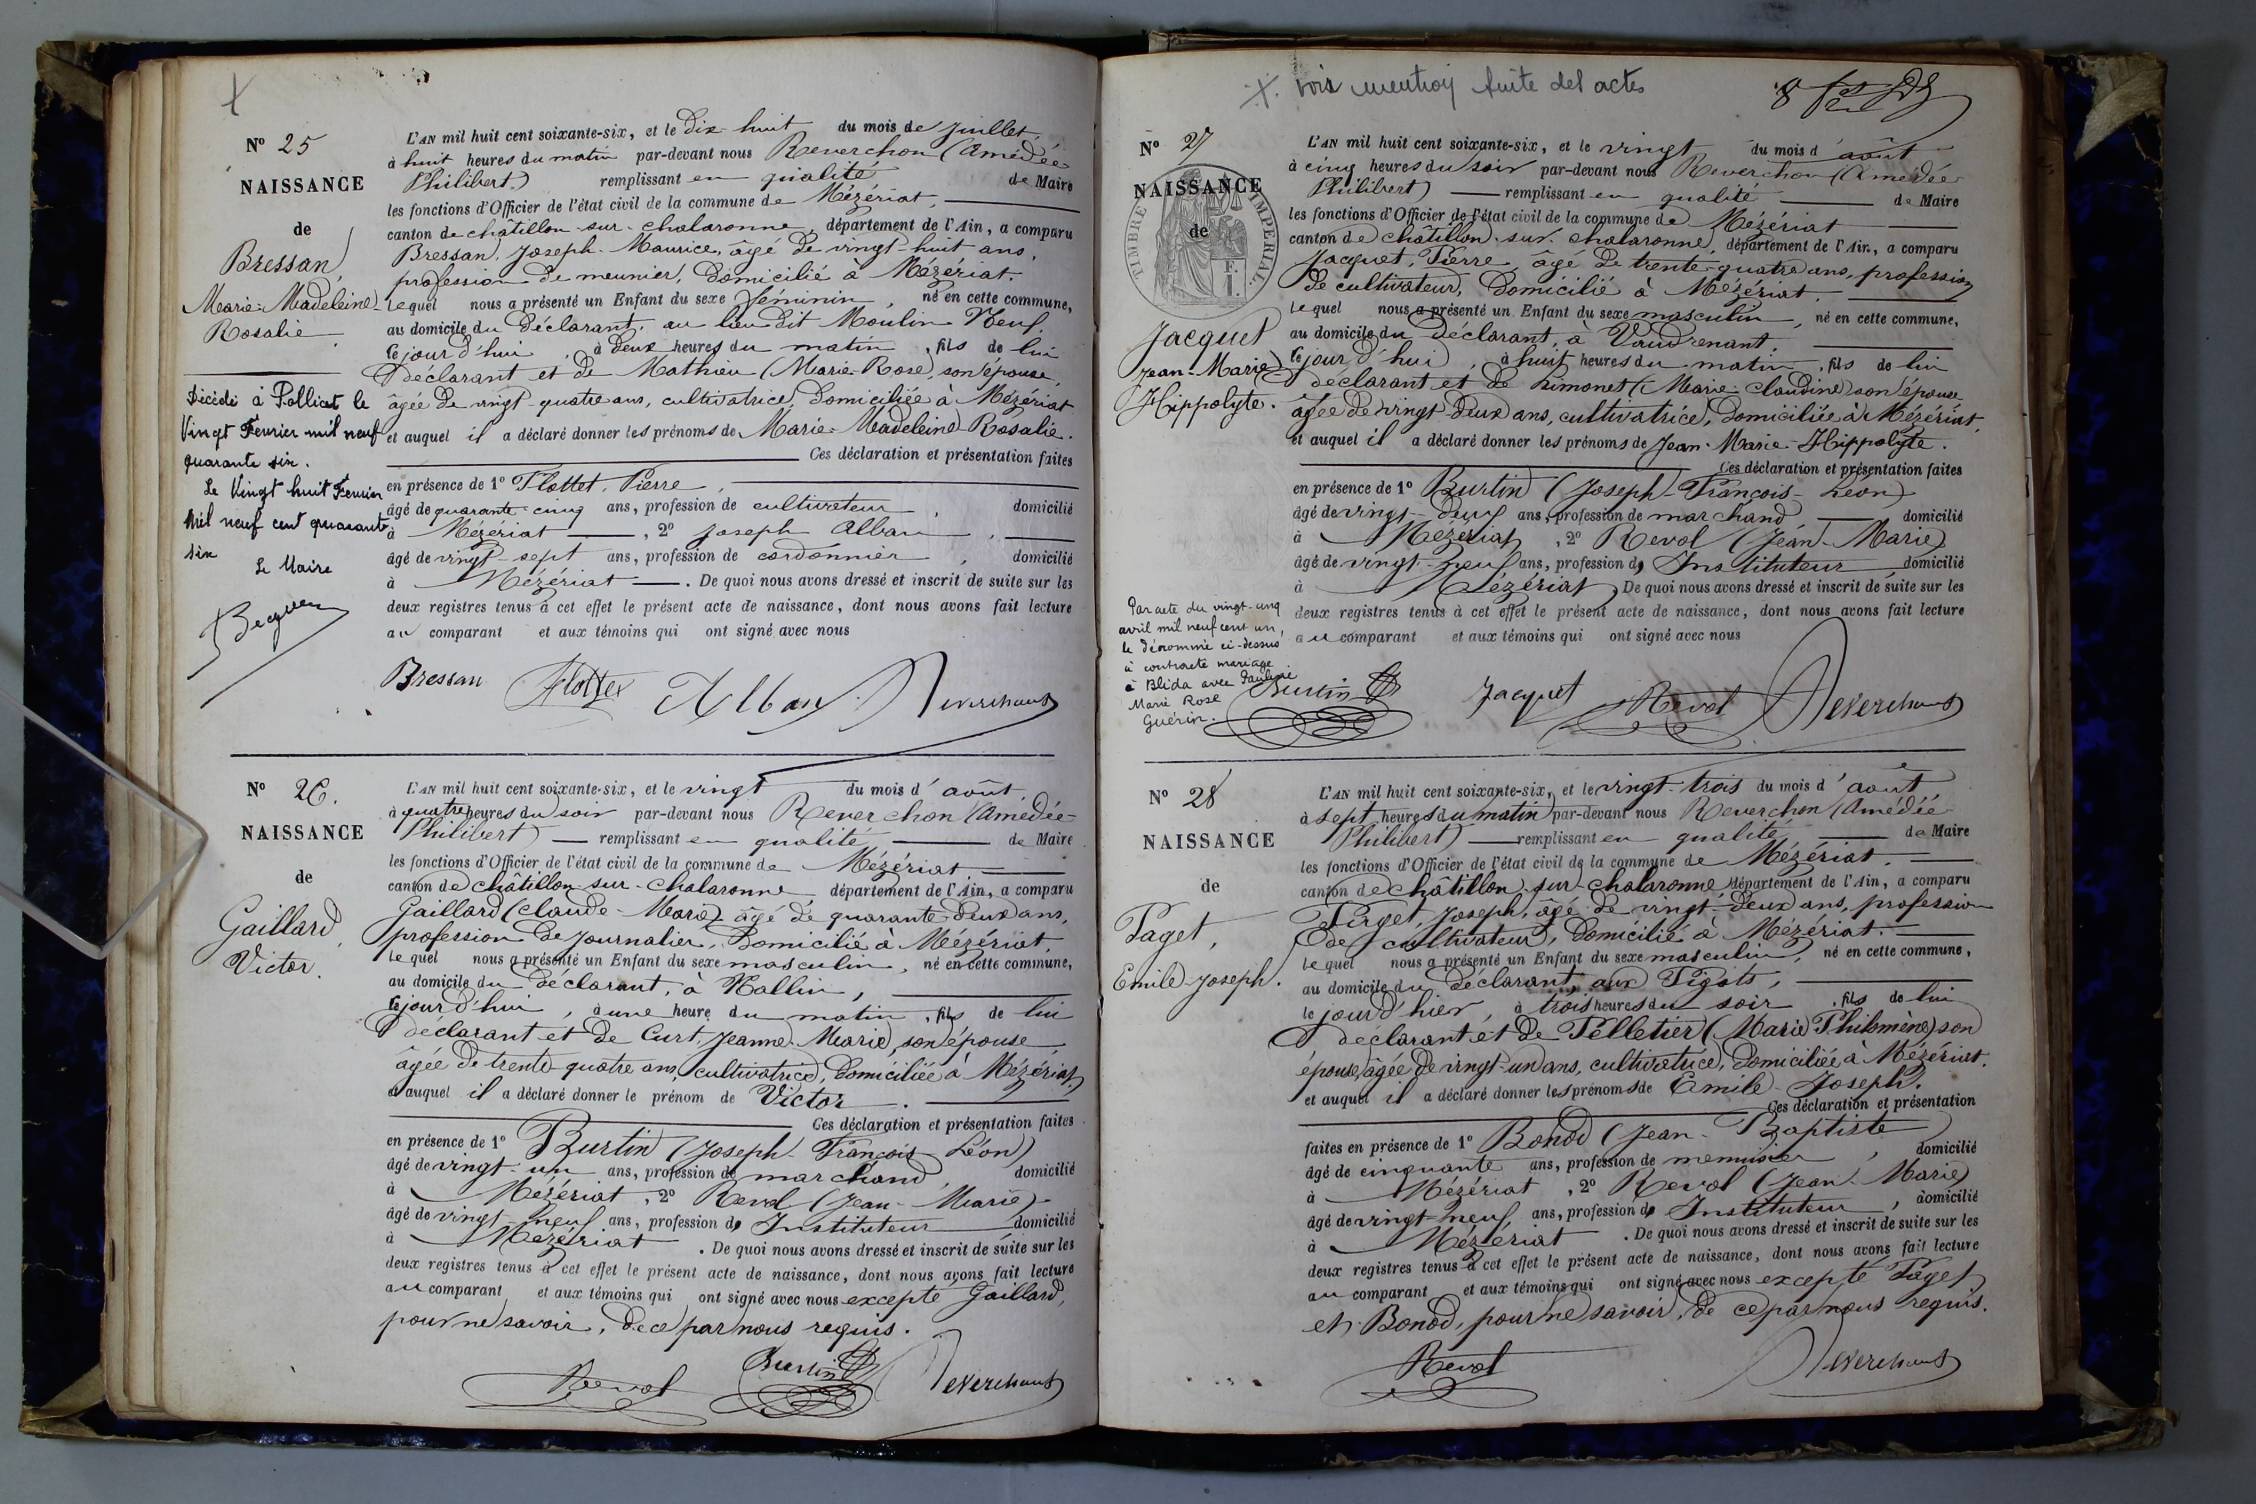 Nº 25
NAISSANCE
de
Bressan,
Marie-Madeleine-
Rosalie.
Décédé à Polliat le
Vingt Février mil neuf
quarante six.
Le Vingt huit Février
Mil neuf cent quarante
six
Le Maire
L'AN mil huit cent soixante-six, et le dix-huit du mois de juillet,
à huit heures du matin par-devant nous Reverchon (Amédée
Philibert) remplissant en qualité de Maire
les fonctions d'Officier de l'état civil de la commune de Mézériat,
canton de châtillon-sur-chalaronne, département de l'Ain, a comparu
Bressan, Joseph-Maurice, âgé de vingt-huit ans,
profession de meunier, domicilié à Mézériat.
lequel nous a présenté un Enfant du sexe féminin, né en cette commune,
au domicile du déclarant, au lieu dit Moulin Neuf,
le jour d'hui, à deux heures du matin, fils de lui
déclarant et de Mathieu (Marie-Rose), son épouse,
âgée de vingt-quatre ans, cultivatrice, domiciliée à Mézériat
et auquel il a déclaré donner les prénoms de Marie-Madeleine-Rosalie.
Ces déclaration et présentation faites
en présence de 1º Flottet, Pierre,
âgé de quarante-cinq ans, profession de cultivateur, domicilié
à Mézériat, 2º Joseph Alban,
âgé de vingt-sept ans, profession de cordonnier, domicilié
à Mézériat. De quoi nous avons dressé et inscrit de suite sur les
deux registres tenus à cet effet le présent acte de naissance, dont nous avons fait lecture
au comparant et aux témoins qui ont signé avec nous
Bressan Flottet Alban Reverchon
Nº 26.
NAISSANCE
de
Gaillard,
Victor.
L'AN mil huit cent soixante-six, et le vingt du mois d'août,
à quatre heures du soir par-devant nous Reverchon (Amédée-
Philibert) remplissant en qualité de Maire
les fonctions d'Officier de l'état civil de la commune de Mézériat
canton de châtillon-sur-chalaronne, département de l'Ain, a comparu
Gaillard (claude-Marie), âgé de quarante-deux ans,
profession de journalier, domicilié à Mézériat,
lequel nous a présenté un Enfant du sexe masculin, né en cette commune,
au domicile du déclarant, à Vallin,
le jour d'hui, à une heure du matin, fils de lui
déclarant et de Curt, Jeanne-Marie, son épouse,
âgée de trente-quatre ans, cultivatrice, domiciliée à Mézériat,
et auquel il a déclaré donner le prénom de Victor.
Ces déclaration et présentation faites
en présence de 1º Burtin (Joseph-François-Léon)
âgé de vingt-un ans, profession de marchand, domicilié
à Mézériat, 2º Revol (Jean-Marie)
âgé de vingt-neuf ans, profession d'Instituteur domicilié
à Mézériat. De quoi nous avons dressé et inscrit de suite sur les
deux registres tenus à cet effet le présent acte de naissance, dont nous avons fait lecture
au comparant et aux témoins qui ont signé avec nous excepté Gaillard,
pour ne savoir, de ce par nous requis.
Revol Burtin Reverchon
+. voir mention suite des actes
Nº 27
NAISSANCE
de
TIMBRE IMPERIAL
Jacquet
Jean-Marie
Hippolyte.
Par acte du vingt-cinq
avril mil neuf cent un,
le dénommé ci-dessus
a contracté mariage
à Blida avec Pauline
Marie Rose
Guérin.
L'AN mil huit cent soixante-six, et le vingt du mois d'août
à cinq heures du soir par-devant nous Reverchon (Amédée
Philibert) remplissant en qualité de Maire
les fonctions d'Officier de l'état civil de la commune de Mézériat
canton de châtillon-sur-chalaronne, département de l'Ain, a comparu
Jacquet, Pierre, âgé de trente-quatre ans, profession
de cultivateur, domicilié à Mézériat.
lequel nous a présenté un Enfant du sexe masculin, né en cette commune,
au domicile du déclarant, à Vaudrenant,
le jour d'hui, à huit heures du matin, fils de lui
déclarant et de Simonet (Marie-Claudine) son épouse
âgée de vingt-deux ans, cultivatrice, domiciliée à Mézériat,
et auquel il a déclaré donner les prénoms de Jean-Marie-Hippolyte.
Ces déclaration et présentation faites
en présence de 1º Burtin (Joseph-François-Léon)
âgé de vingt-deux ans, profession de marchand, domicilié
à Mézériat, 2º Revol (Jean-Marie)
âgé de vingt-neuf ans, profession d'Instituteur, domicilié
à Mézériat. De quoi nous avons dressé et inscrit de suite sur les
deux registres tenus à cet effet le présent acte de naissance, dont nous avons fait lecture
au comparant et aux témoins qui ont signé avec nous
Burtin Jacquet Revol Reverchon
Nº 28
NAISSANCE
de
Paget,
Emile-Joseph.
L'AN mil huit cent soixante-six, et le vingt-trois du mois d'août
à sept heures du matin par-devant nous Reverchon (Amédée
Philibert) remplissant en qualité de Maire
les fonctions d'Officier de l'état civil de la commune de Mézériat.
canton de châtillon-sur-chalaronne, département de l'Ain, a comparu
Paget, Joseph, âgé de vingt-deux ans, profession
de cultivateur, domicilié à Mézériat.
lequel nous a présenté un Enfant du sexe masculin, né en cette commune,
au domicile du déclarant, aux Pigots,
le jour d'hier, à trois heures du soir, fils de lui
déclarant et de Pelletier (Marie Philomène) son
épouse, âgée de vingt-un ans, cultivatrice, domiciliée à Mézériat.
et auquel il a déclaré donner les prénoms de Emile-Joseph.
Ces déclaration et présentation
faites en présence de 1º Bonod (Jean-Baptiste
âgé de cinquante ans, profession de menuisier, domicilié
à Mézériat, 2º Revol (Jean-Marie)
âgé de vingt-neuf ans, profession d'Instituteur, domicilié
à Mézériat. De quoi nous avons dressé et inscrit de suite sur les
deux registres tenus à cet effet le présent acte de naissance, dont nous avons fait lecture
au comparant et aux témoins qui ont signé avec nous excepté Paget
et Bonod, pour ne savoir, de ce par nous requis.
Revol Reverchon